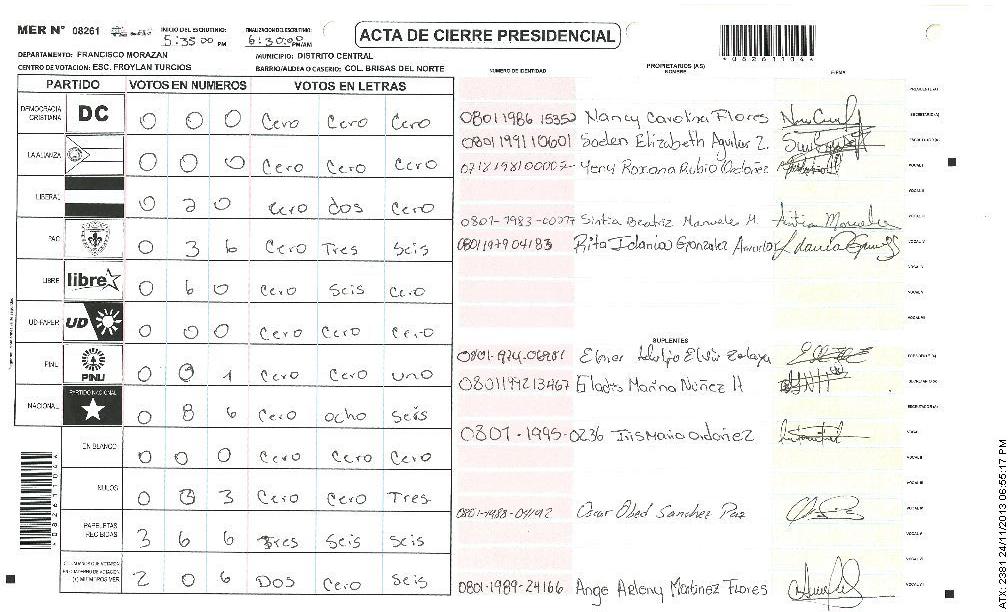 MER N° 08261 INICIO DEL ESCRUTINIO: 5:35 00 PM FINALIZACION ESCRUTINIO: 6:30:00 PM/AM ACTA DE CIERRE PRESIDENCIAL
DEPARTAMENTO: FRANCISCO MORAZAN MUNICIPIO: DISTRITO CENTRAL
CENTRO DE VOTACION: ESC. FROYLAN TURCIOS BARRIO/ALDEA O CASERIO: COL. BRISAS DEL NORTE
PARTIDO VOTOS EN NUMEROS VOTOS EN LETRAS
DEMOCRACIA CRISTIANA DC 0 0 0 Cero Cero Cero
LA ALIANZA 0 0 0 Cero Cero Cero
LIBERAL 0 2 0 Cero dos Cero
PAC 0 3 6 Cero Tres Seis
LIBRE libre 0 6 0 Cero Seis Cero
UD-FAPER UD 0 0 0 Cero Cero Cero
PINU PINU 0 0 1 Cero Cero uno
NACIONAL PARTIDO NACIONAL 0 8 6 Cero ocho Seis
EN BLANCO 0 0 0 Cero Cero Cero
NULOS 0 0 3 Cero Cero Tres
PAPELETAS RECIBIDAS 3 6 6 Tres Seis Seis
2 0 6 DOS Cero Seis
NUMERO DE IDENTIDAD PROPIETARIOS (AS) NOMBRE FIRMA
PRESIDENTE(A)
0801 1986 15352 Nancy Carolina Flores SECRETARIO(A)
0801 1991 10601 Elizabeth Aguilar Z. ESCRUTADOR(A)
Roxana Rubio Ordoñez VOCAL I
VOCAL II
0801-1983- Sintia Beatriz H. VOCAL III
0801 1979 04183 Rita Idania Gonzalez VOCAL IV
VOCAL V
VOCAL VI
VOCAL VII
SUPLENTES
PRESIDENTE(A)
0801199213467 Gladis Marina Núñez H SECRETARIO(A)
ESCRUTADOR(A)
0801-1995-0236 Iris Maria Ordoñez VOCAL I
VOCAL II
VOCAL III
0801-1988-04192 Oscar Obed Sanchez Paz VOCAL IV
VOCAL V
VOCAL VI
0801-1989-24166 Ange Arleny Martinez Flores VOCAL VII
ATX: 2381 24/11/2013 06:55:17 PM